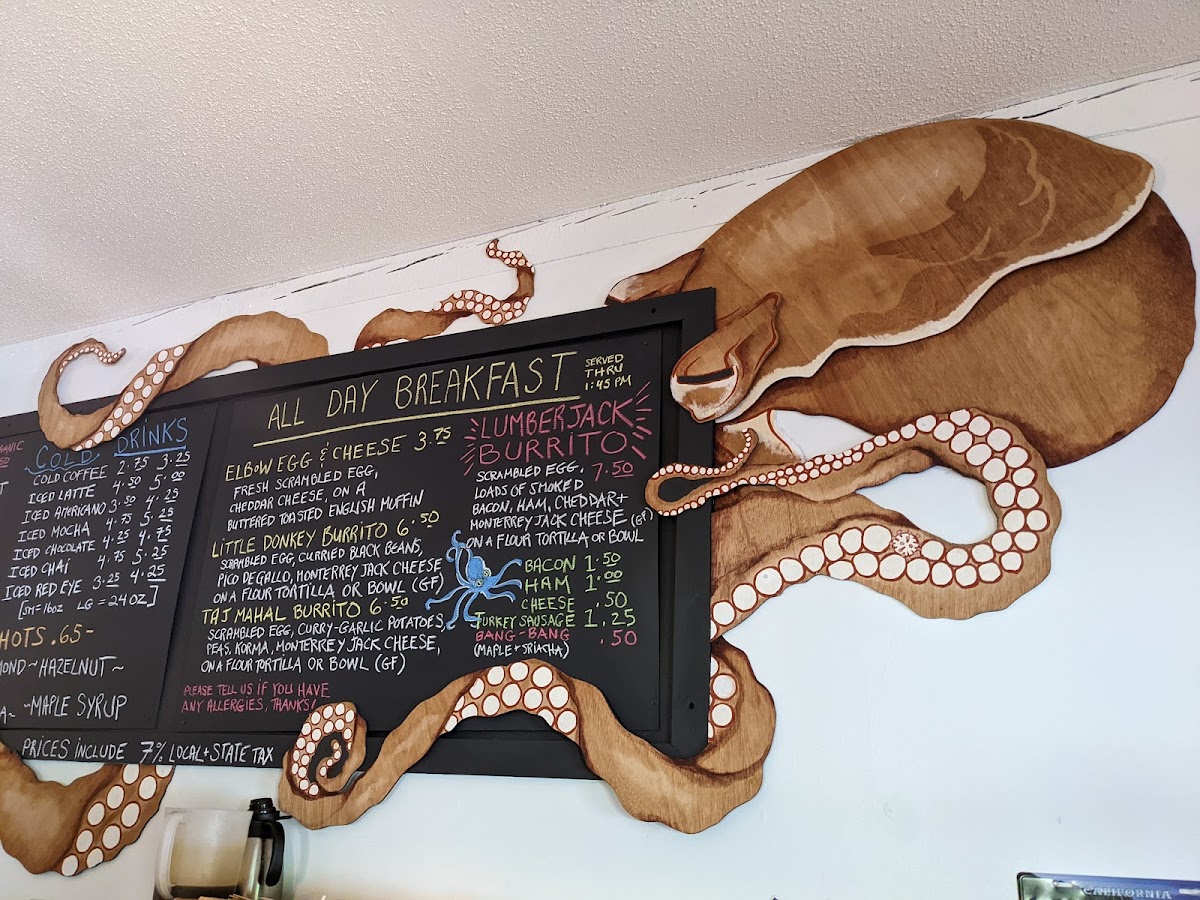 COLD DRINKS
COLD COFFEE 2.75 3.25
ICED LATTE 4.50 5.00
ICED AMERICANO 3.50 4.25
ICED MOCHA 4.75 5.25
ICED CHOCOLATE 4.25 4.75
ICED CHAI 4.75 5.25
ICED RED EYE 3.25 4.25
[SM=16OZ LG=24OZ]
HOTS .65-
~HAZELNUT~
~MAPLE SYRUP
PRICES INCLUDE 7% LOCAL+STATE TAX
ALL DAY BREAKFAST
SERVED
THRU
1:45 PM
ELBOW EGG & CHEESE 3.75
FRESH SCRAMBLED EGG,
CHEDDAR CHEESE, ON A
BUTTERED TOASTED ENGLISH MUFFIN
LITTLE DONKEY BURRITO 6.50
SCRAMBLED EGG, CURRIED BLACK BEANS,
PICO DE GALLO, MONTERREY JACK CHEESE
ON A FLOUR TORTILLA OR BOWL (GF)
TAJ MAHAL BURRITO 6.50
SCRAMBLED EGG, CURRY-GARLIC POTATOES,
PEAS, KORMA, MONTERREY JACK CHEESE,
ON A FLOUR TORTILLA OR BOWL (GF)
PLEASE TELL US IF YOU HAVE
ANY ALLERGIES, THANKS!
LUMBERJACK
BURRITO
SCRAMBLED EGG, 7.50
LOADS OF SMOKED
BACON, HAM, CHEDDAR+
MONTERREY JACK CHEESE (GF)
ON A FLOUR TORTILLA OR BOWL
BACON 1.50
HAM 1.00
CHEESE .50
TURKEY SAUSAGE 1.25
BANG-BANG .50
(MAPLE+SRIACHA)
CALIFORNIA